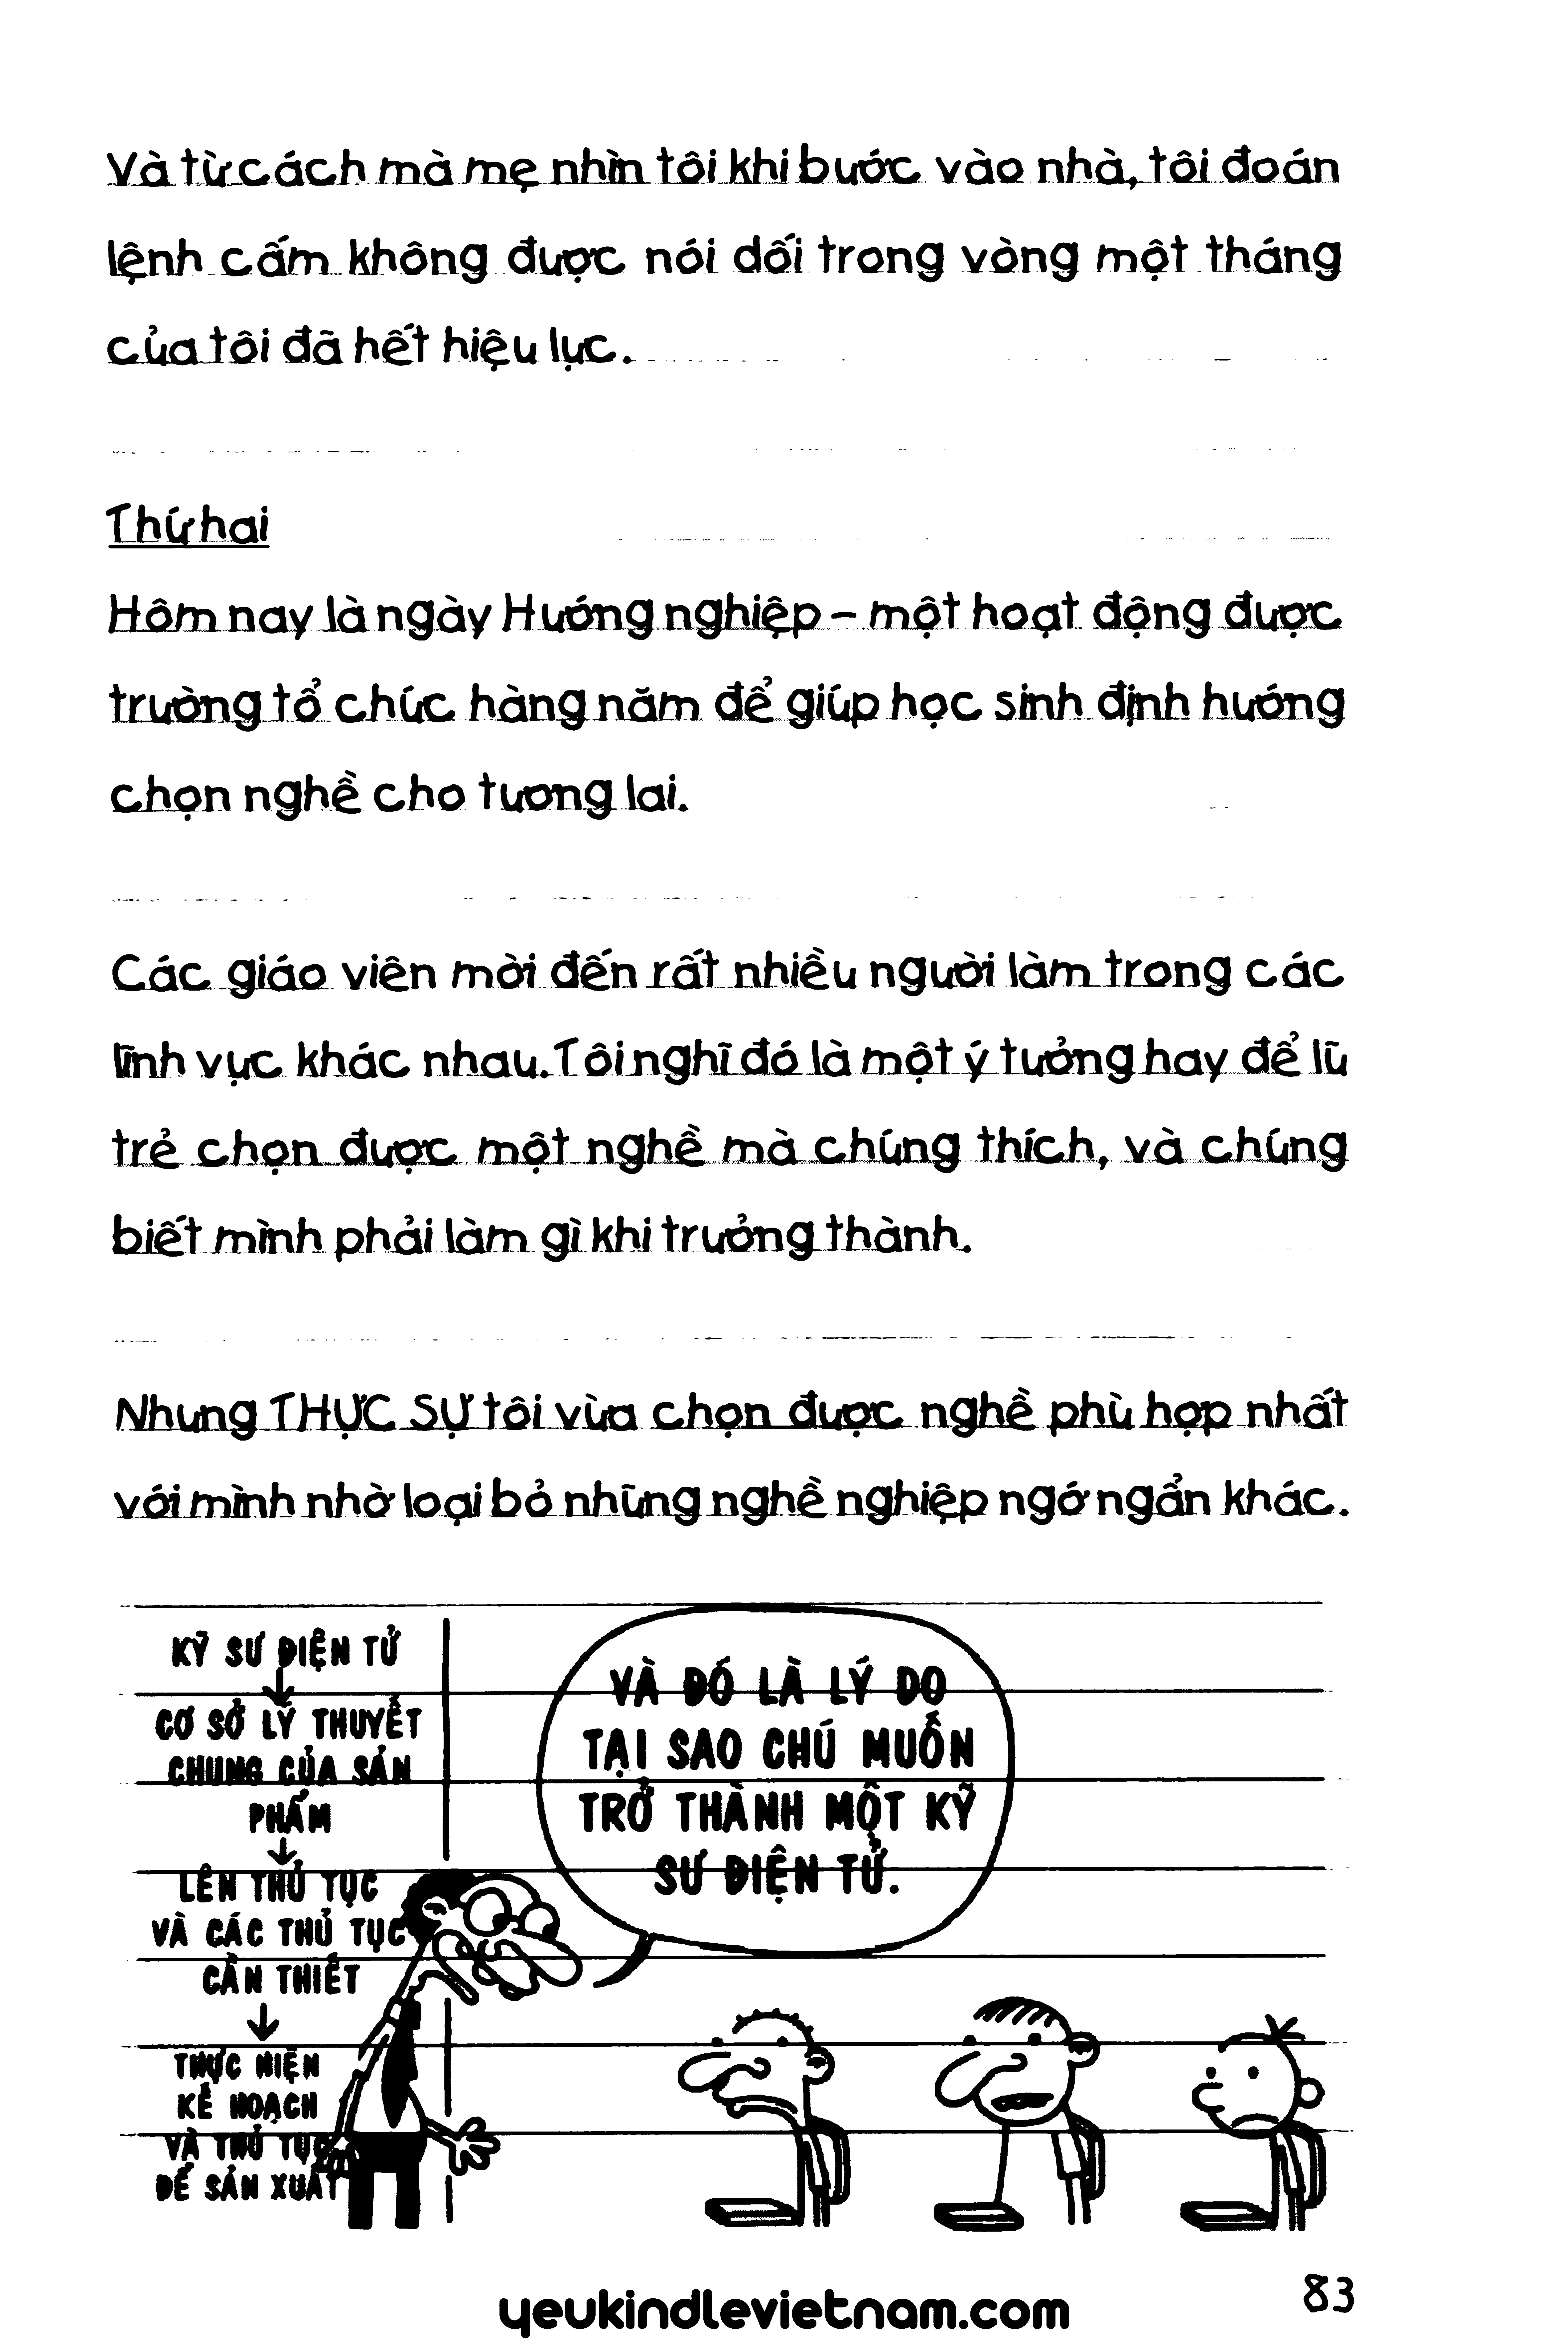 Và từ cách mà mẹ nhìn tôi khi bước vào nhà, tôi đoán
lệnh cấm không được nói dối trong vòng một tháng
của tôi đã hết hiệu lực.
Thứ hai
Hôm nay là ngày Hướng nghiệp – một hoạt động được
trường tổ chức hàng năm để giúp học sinh định hướng
chọn nghề cho tương lai.
Các giáo viên mời đến rất nhiều người làm trong các
lĩnh vực khác nhau. Tôi nghĩ đó là một ý tưởng hay để lũ
trẻ chọn được một nghề mà chúng thích, và chúng
biết mình phải làm gì khi trưởng thành.
Nhưng THỰC SỰ tôi vừa chọn được nghề phù hợp nhất
với mình nhờ loại bỏ những nghề nghiệp ngớ ngẩn khác.
KỸ SƯ ĐIỆN TỬ
CƠ SỞ LÝ THUYẾT
CHUNG CỦA SẢN
PHẨM
LÊN THỦ TỤC
VÀ CÁC THỦ TỤC
CẦN THIẾT
THỰC HIỆN
KẾ HOẠCH
VÀ THỦ TỤC
ĐỂ SẢN XUẤT
VÀ ĐÓ LÀ LÝ DO
TẠI SAO CHÚ MUỐN
TRỞ THÀNH MỘT KỸ
SƯ ĐIỆN TỬ.
yeukindlevietnam.com
83